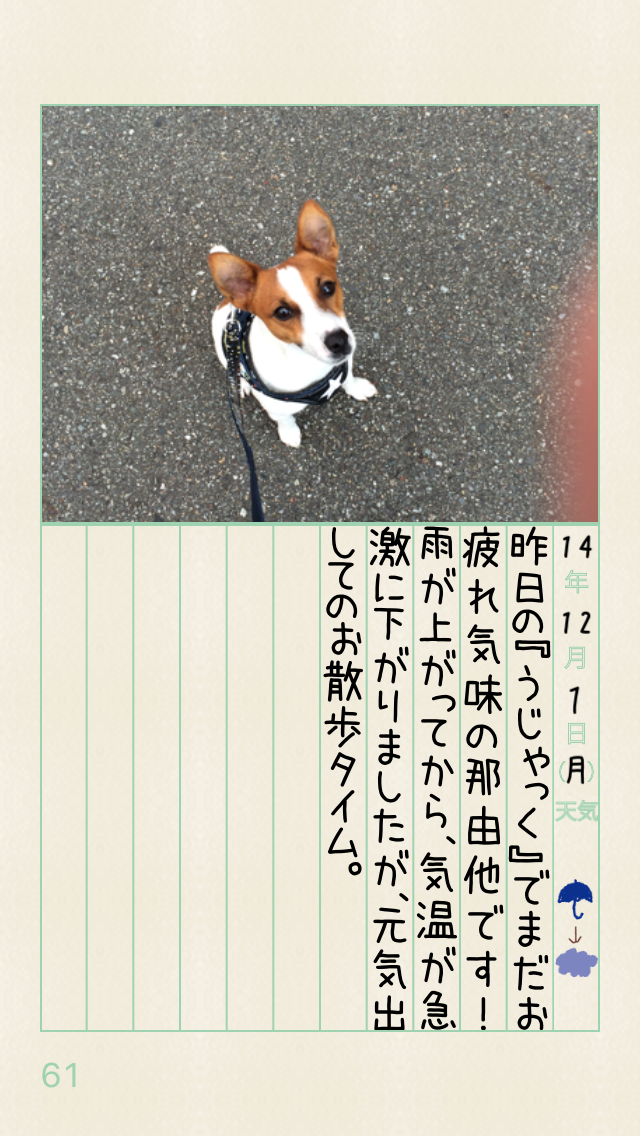 14年12月1日(月)天気
昨日の『うじゃっく』でまだお
疲れ気味の那由他です！
雨が上がってから、気温が急
激に下がりましたが、元気出
してのお散歩タイム。
61